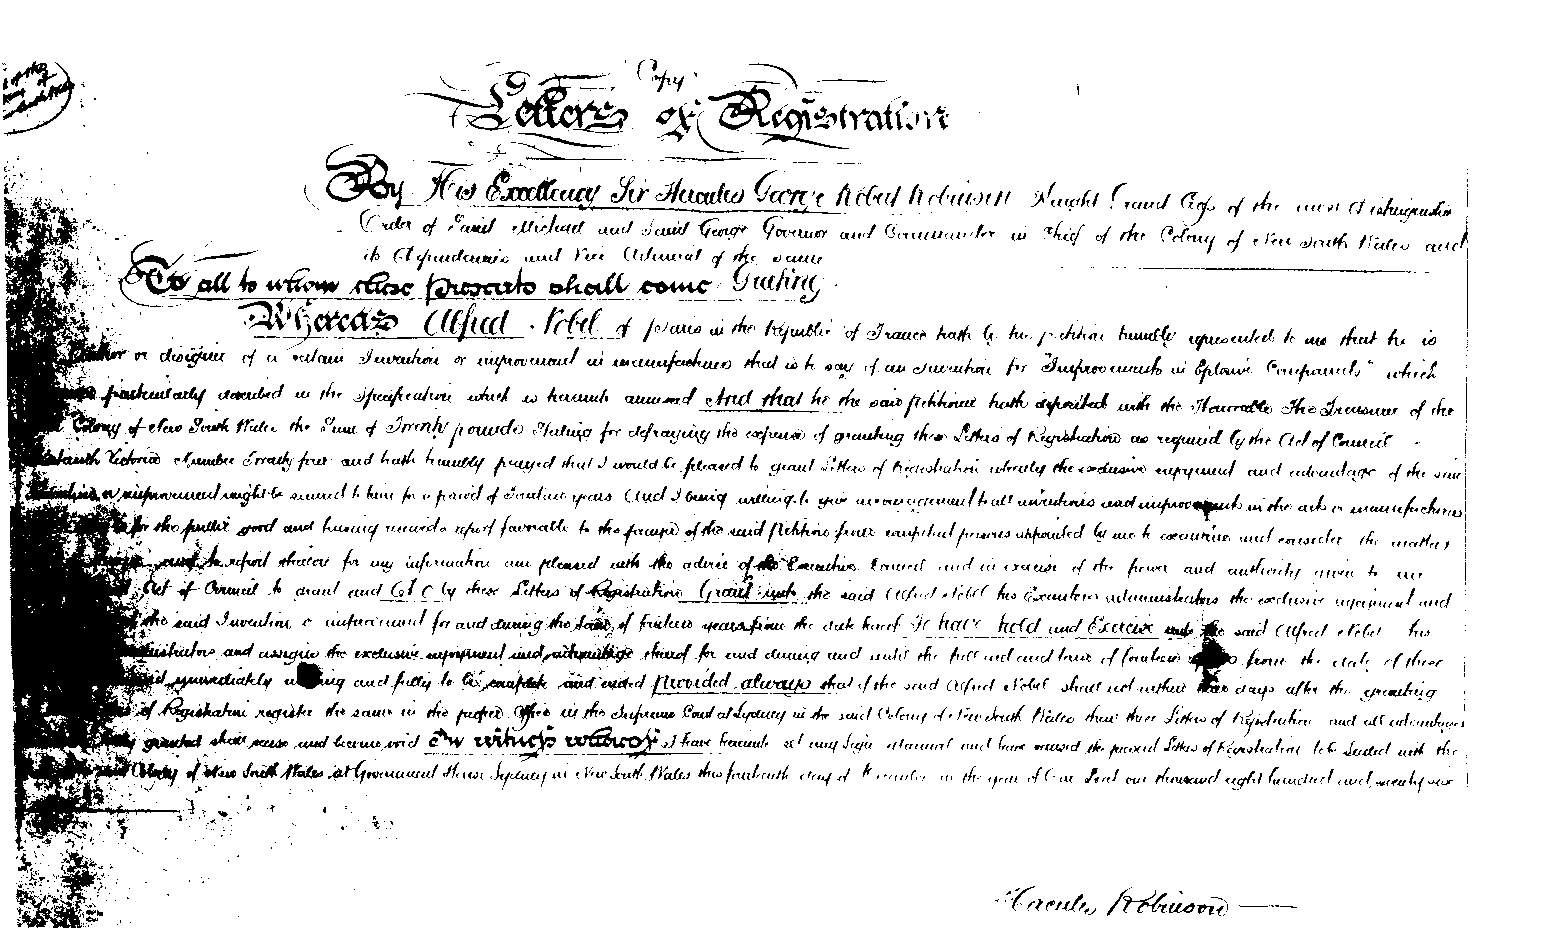 Copy
Letters of Registration
By His Excellency Sir Hercules George Robert Robinson Knight Grand Cross of the most distinguished
Order of Saint Michael and Saint George Governor and Commander in Chief of the Colony of New South Wales and
its Dependencies and Vice Admiral of the same
To all to whom these Presents shall come Greeting
Whereas Alfred Nobel of Paris in the Republic of France hath by his petition humbly represented to me that he is
Author or designer of a certain Invention or improvement in manufactures that is to say of an invention for "Improvements in Explosive Compounds" which
particularly described in the Specification which is hereunto annexed And that he the said Petitioner hath deposited with the Honorable The Treasurer of the
Colony of New South Wales the Sum of Twenty pounds Sterling for defraying the expense of granting these Letters of Registration as required by the Act of Council
Sixteenth Victoria Number Twenty four and hath humbly prayed that I would be pleased to grant Letters of Registration whereby the exclusive enjoyment and advantage of the said
Invention or improvement might be secured to him for a period of Fourteen years And I being willing to give encouragement to all inventions and improvements in the arts or manufactures
for the public good and having received a report favorable to the prayer of the said Petition from competent persons appointed by me to examine and consider the matters
and to report thereon for my information am pleased with the advice of the Executive Council and in exercise of the power and authority given to me
Act of Council to grant and by these Letters of Registration Grant unto the said Alfred Nobel his Executors administrators the exclusive enjoyment and
the said Invention or improvement for and during the term of fourteen years from the date hereof To have hold and Exercise unto the said Alfred Nobel his
administrators and assigns the exclusive enjoyment and advantage thereof for and during and until the full end and term of fourteen from the date of these
immediately and fully to be complete and ended Provided always that if the said Alfred Nobel shall not within three days after the granting
of Registration register the same in the proper Office in the Supreme Court at Sydney in the said Colony of New South Wales then these Letters of Registration and all advantages
granted shall cease and become void In witness whereof I have hereunto set my Sign Manual and have caused the present Letters of Registration to be Sealed with the
Colony of New South Wales at Government House Sydney in New South Wales this fourteenth day of in the year of Our Lord one thousand eight hundred and seventy six
Hercules Robinson